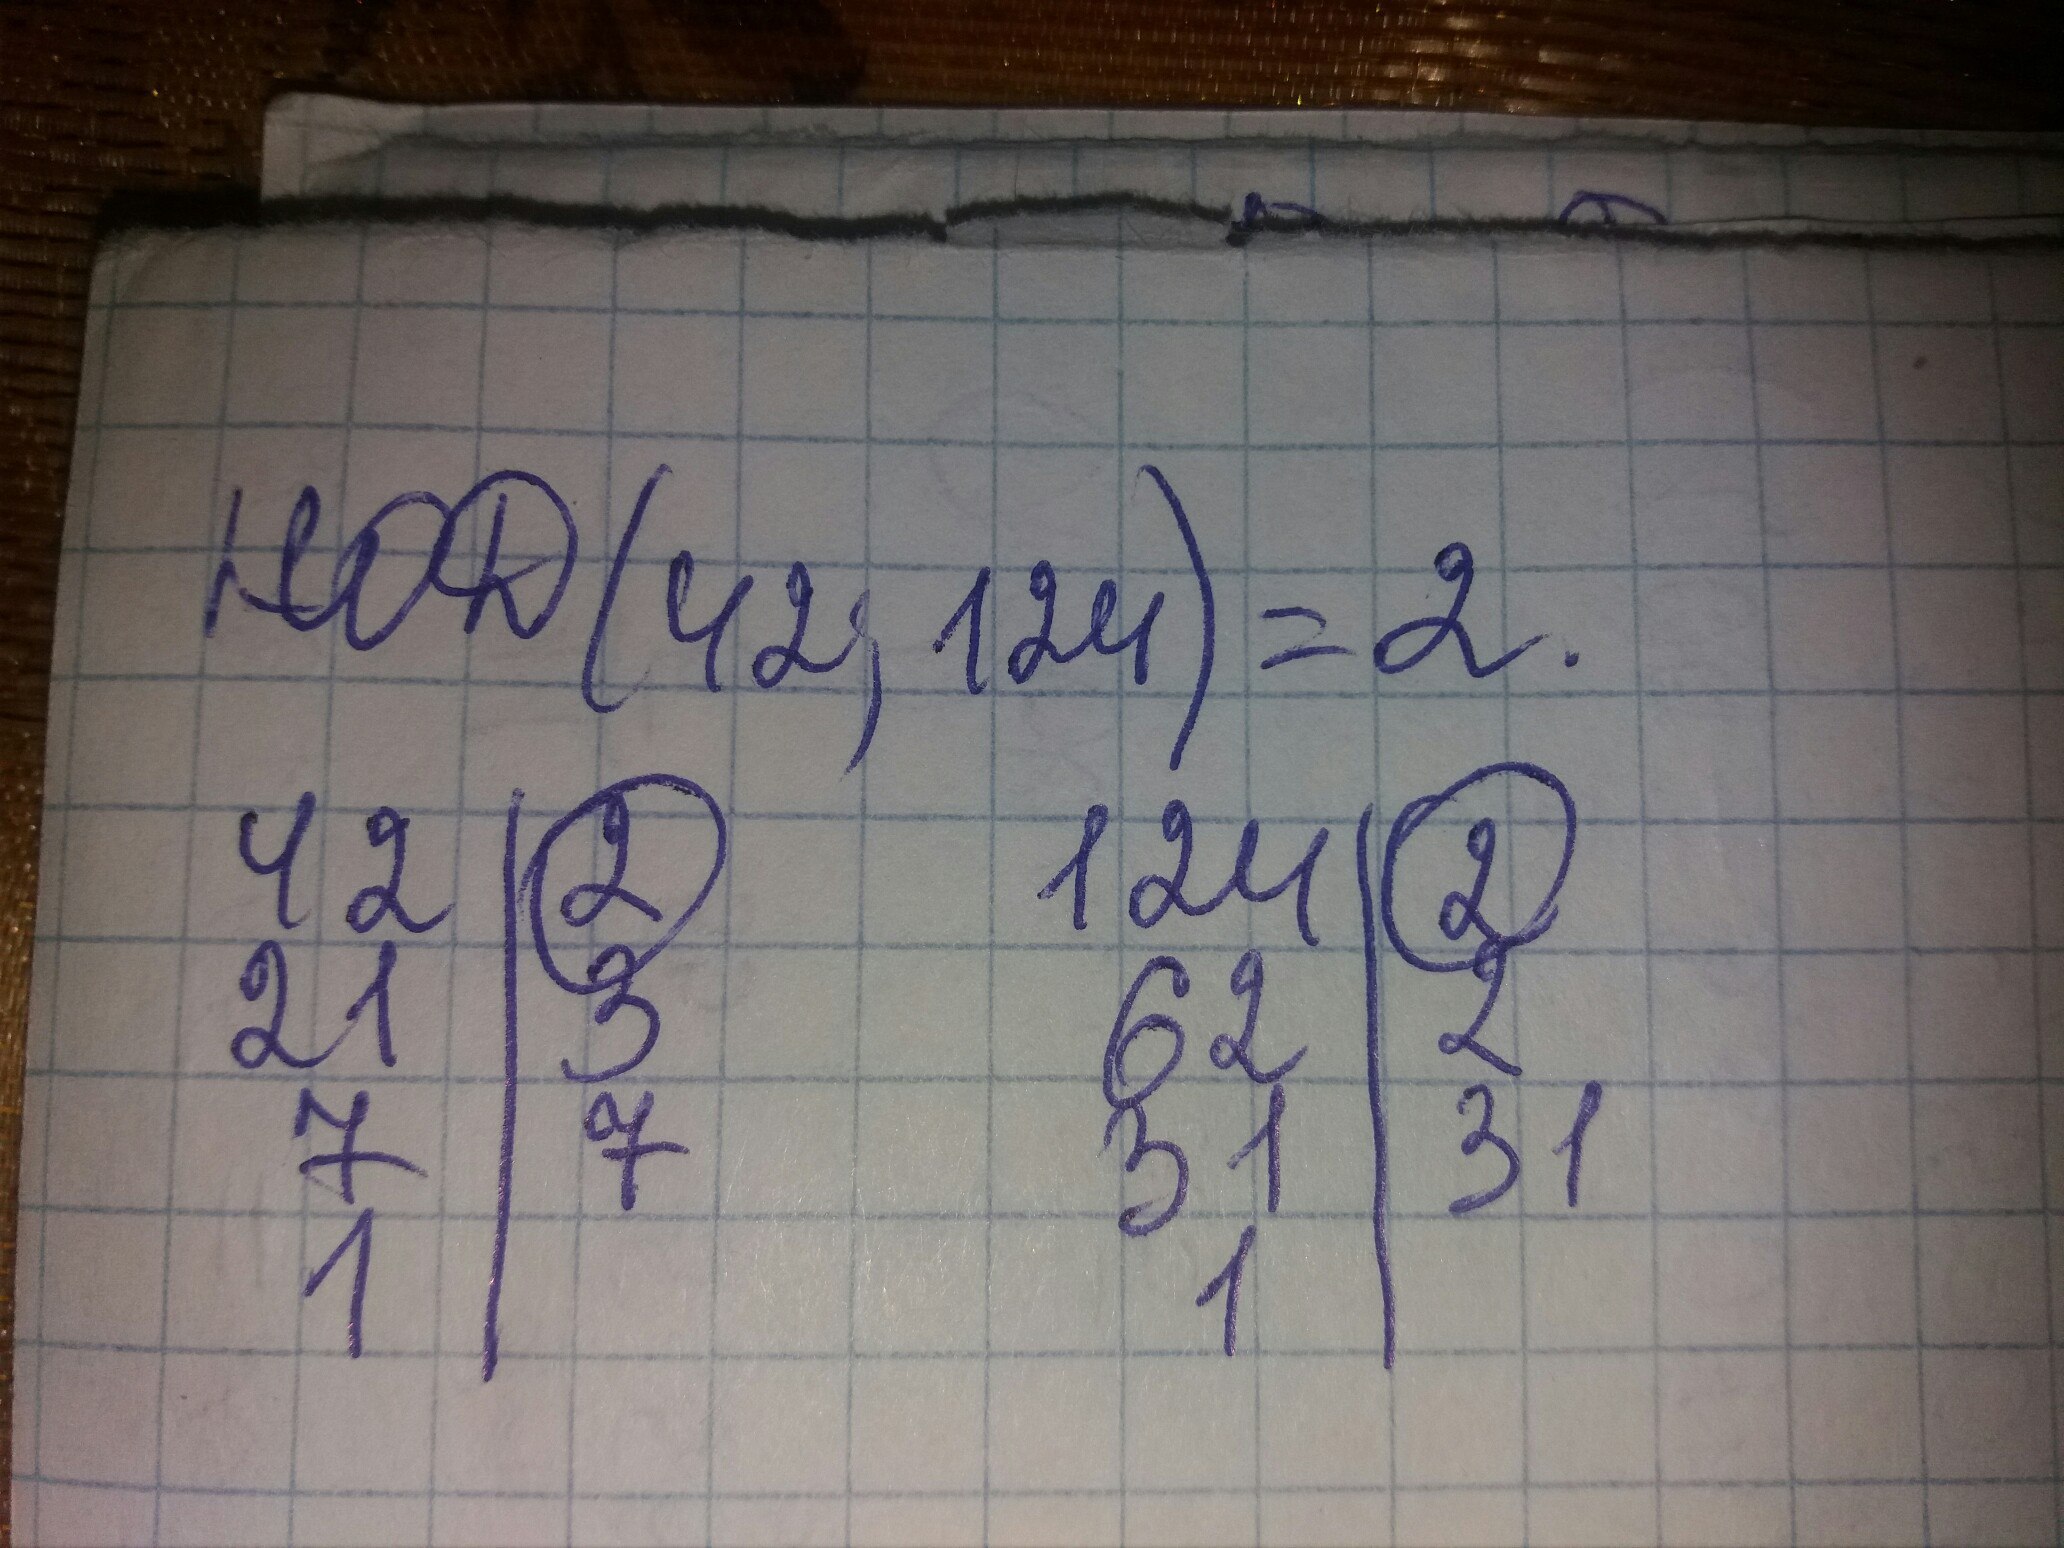 НОД(42, 124) = 2.
42 | 2 124 | 2
21 | 3 62 | 2
7 | 7 31 | 31
1 | 1 |